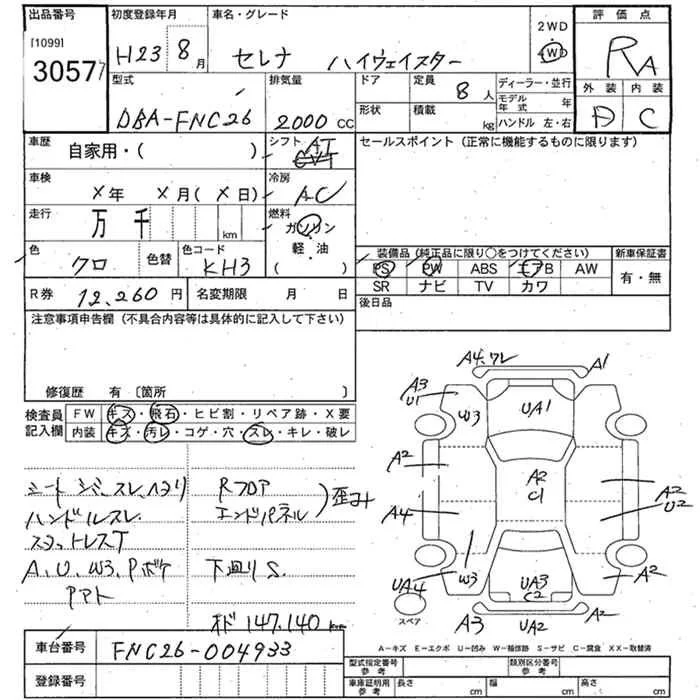 出品番号 初度登録年月 車名・グレード 2WD 評価点
[1099] 30577 H23 8月 セレナ ハイウェイスター 4WD RA
型式 排気量 ドア 定員 8人 ディーラー・並行 外装 内装
DBA-FNC26 2000 CC 形状 積載 kg モデル年式 年 ハンドル 左・右 D C
車歴 自家用・( ) シフト AT CVT セールスポイント (正常に機能するものに限ります)
車検 X年 X月( X日) 冷房 AC
走行 万 千 km 燃料 ガソリン 軽・油 ( )
色 クロ 色替 色コード KH3 装備品 (純正品に限り○をつけてください) 新車保証書
PS PW ABS エアB AW 有・無
SR ナビ TV カワ
R券 12,260円 名変期限 月 日 後日品
注意事項申告欄 (不具合内容等は具体的に記入して下さい)
修復歴 有 〔箇所 〕
検査員記入欄 FW キズ・飛石・ヒビ割・リペア跡・X要
内装 キズ・汚レ・コゲ・穴・スレ・キレ・破レ
ハンドルスレ
A、U、W3、Pボケ
Rフロア
エンドパネル 歪み
下廻りS.
147,140 km
A4、ワレ A1
A3 U1 W3 UA1
A2 A2 C1 A2 U2
A4
UA4 W3 UA3 C2 A2
スペア A3 UA2 A2
A-キズ E-エクボ U-凹み W-補修跡 S-サビ C-腐食 XX-取替済
車台番号 FNC26-004933
登録番号
型式指定番号 参考 類別区分番号 参考
車庫証明用 参考 長さ cm 幅 cm 高さ cm